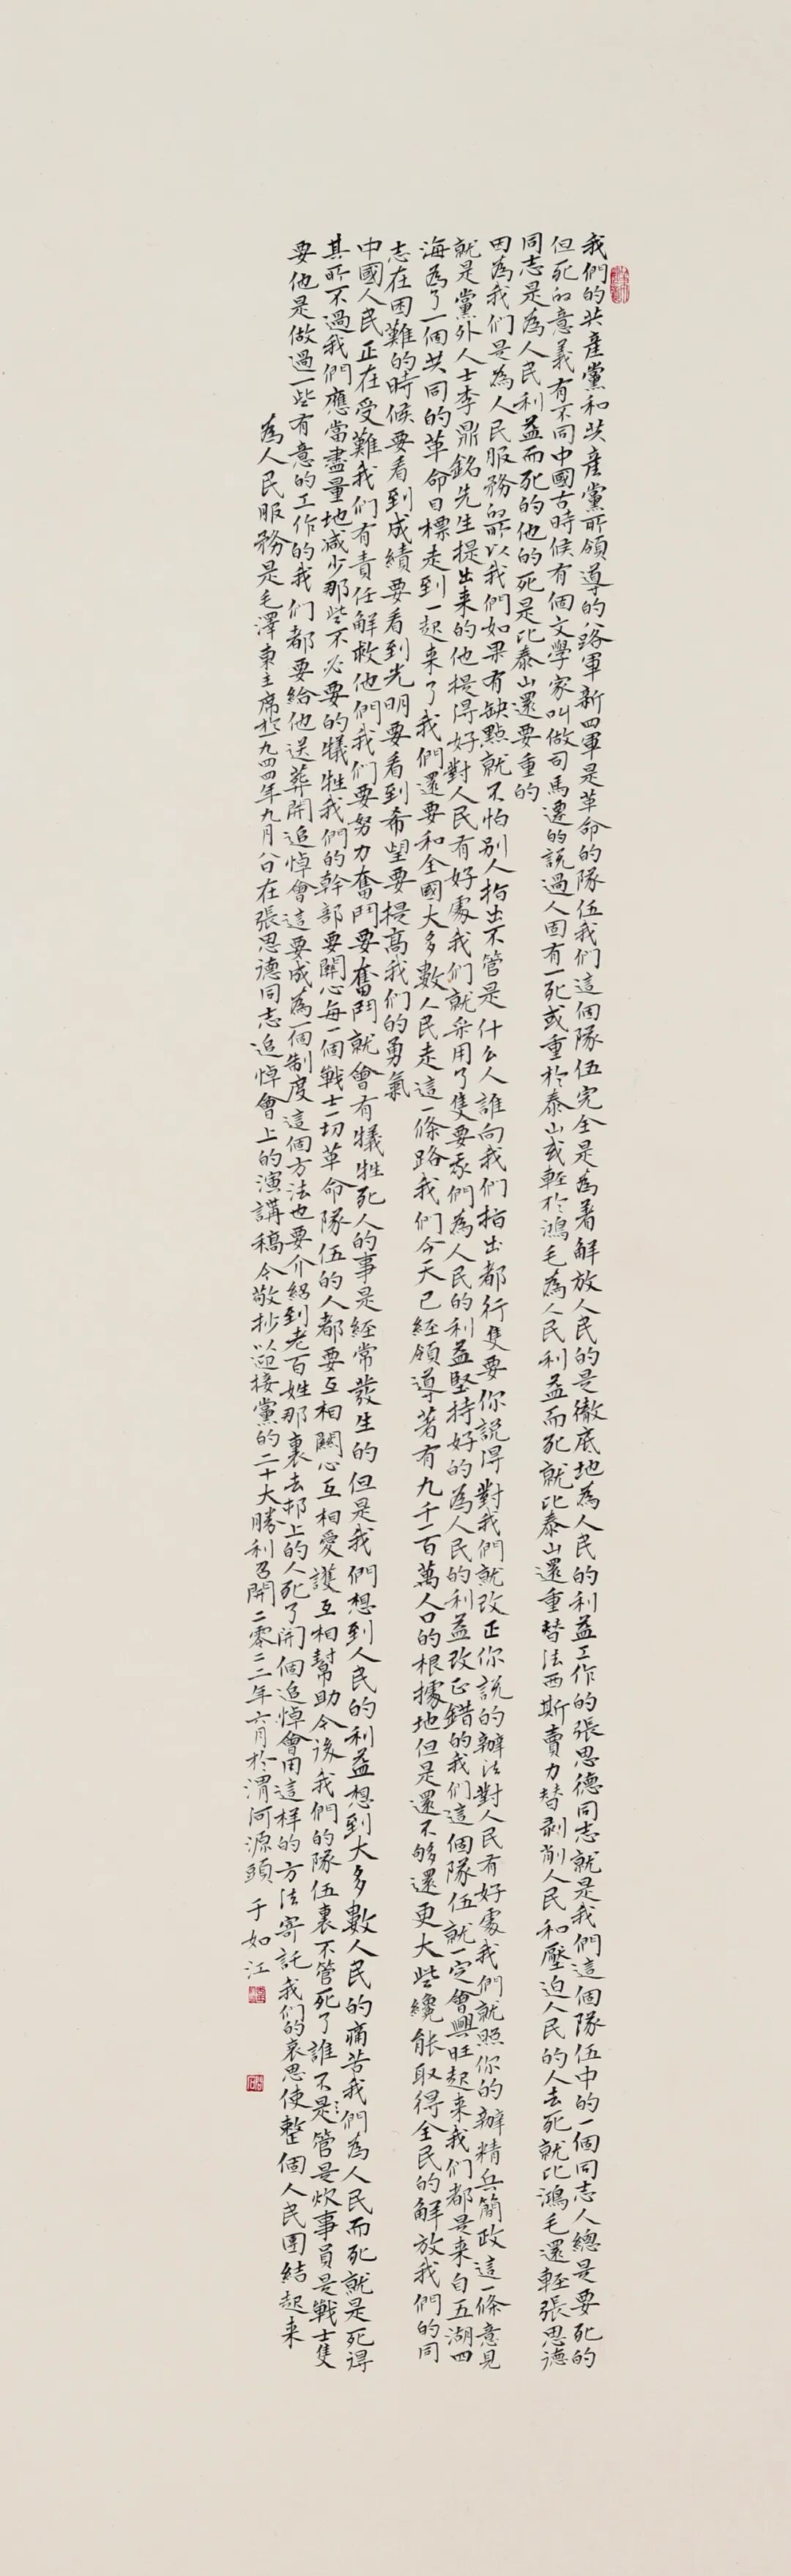 我們的共產黨和共產黨所領導的八路軍新四軍是革命的隊伍我们這個隊伍完全是為著解放人民的是徹底地為人民的利益工作的張思德同志就是我們這個隊伍中的一個同志人總是要死的
但死的意義有不同中國古時候有個文學家叫做司馬遷的說過人固有一死或重於泰山或輕於鴻毛為人民利益而死就比泰山還重替法西斯賣力替剥削人民和壓迫人民的人去死就比鴻毛還輕張思德
同志是為人民利益而死的他的死是比泰山還要重的
因為我们是為人民服務的所以我們如果有缺點就不怕别人指出不管是什么人誰向我們指出都行隻要你說得對我們就改正你說的辦法對人民有好處我們就照你的辦精兵簡政這一條意見
就是黨外人士李鼎銘先生提出来的他提得好對人民有好處我们就采用了隻要我們為人民的利益堅持好的為人民的利益改正錯的我们這個隊伍就一定會興旺起来我们都是来自五湖四
海為了一個共同的革命目標走到一起来了我們還要和全國大多數人民走這一條路我们今天已經領導著有九千一百萬人口的根據地但是還不够還更大些纔能取得全民的解放我們的同
志在困難的時候要看到成績要看到光明要看到希望要提高我们的勇氣
中國人民正在受難我们有責任解救他們我们要努力奮鬥要奮鬥就會有犧牲死人的事是經常發生的但是我們想到人民的利益想到大多數人民的痛苦我們為人民而死就是死得
其所不過我們應當盡量地减少那些不必要的犧牲我們的幹部要關心每一個戰士一切革命隊伍的人都要互相關心互相愛護互相幫助今後我們的隊伍裏不管死了誰不是管是炊事員是戰士隻
要他是做過一些有意的工作的我们都要給他送葬開追悼會這要成為一個制度這個方法也要介紹到老百姓那裏去邨上的人死了開個追悼會用這样的方法寄託我们的哀思使整個人民團結起来
為人民服務是毛澤東主席於一九四四年九月八日在張思德同志追悼會上的演講稿今敬抄以迎接黨的二十大勝利召開二零二二年六月於渭河源頭 于如江